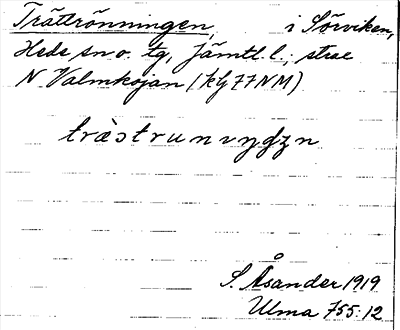 Trättrönningen, i Sörviken,
Hede sn o. tg, Jämtl. l.; strax
N Valmkojan (kfj 77 NM)
S. Åsander 1919
Ulma 755:12